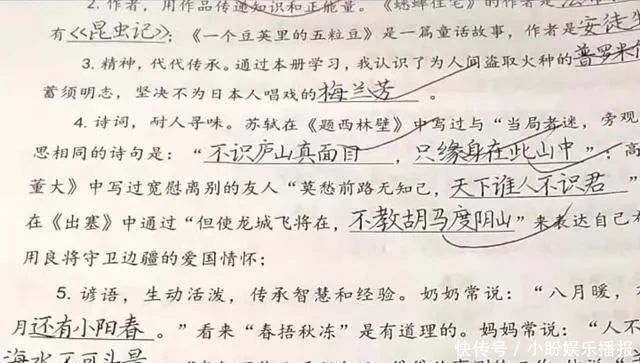 2. 作者，用作品传递知识和正能量。《蟋蟀住宅》的作者是
有《昆虫记》；《一个豆荚里的五粒豆》是一篇童话故事，作者是安徒生
3. 精神，代代传承。通过本册学习，我认识了为人间盗取火种的普罗米
蓄须明志，坚决不为日本人唱戏的梅兰芳。
4. 诗词，耐人寻味。苏轼在《题西林壁》中写过与“当局者迷，旁观
思相同的诗句是：“不识庐山真面目，只缘身在此山中”；高
董大》中写过宽慰离别的友人“莫愁前路无知己，天下谁人不识君”
在《出塞》中通过“但使龙城飞将在，不教胡马度阴山”来表达自己
用良将守卫边疆的爱国情怀；
5. 谚语，生动活泼，传承智慧和经验。奶奶常说：“八月暖，
月还有小阳春。”看来“春捂秋冻”是有道理的。妈妈常说：“人不
海水不可斗量
快传号/小盼娱乐播报